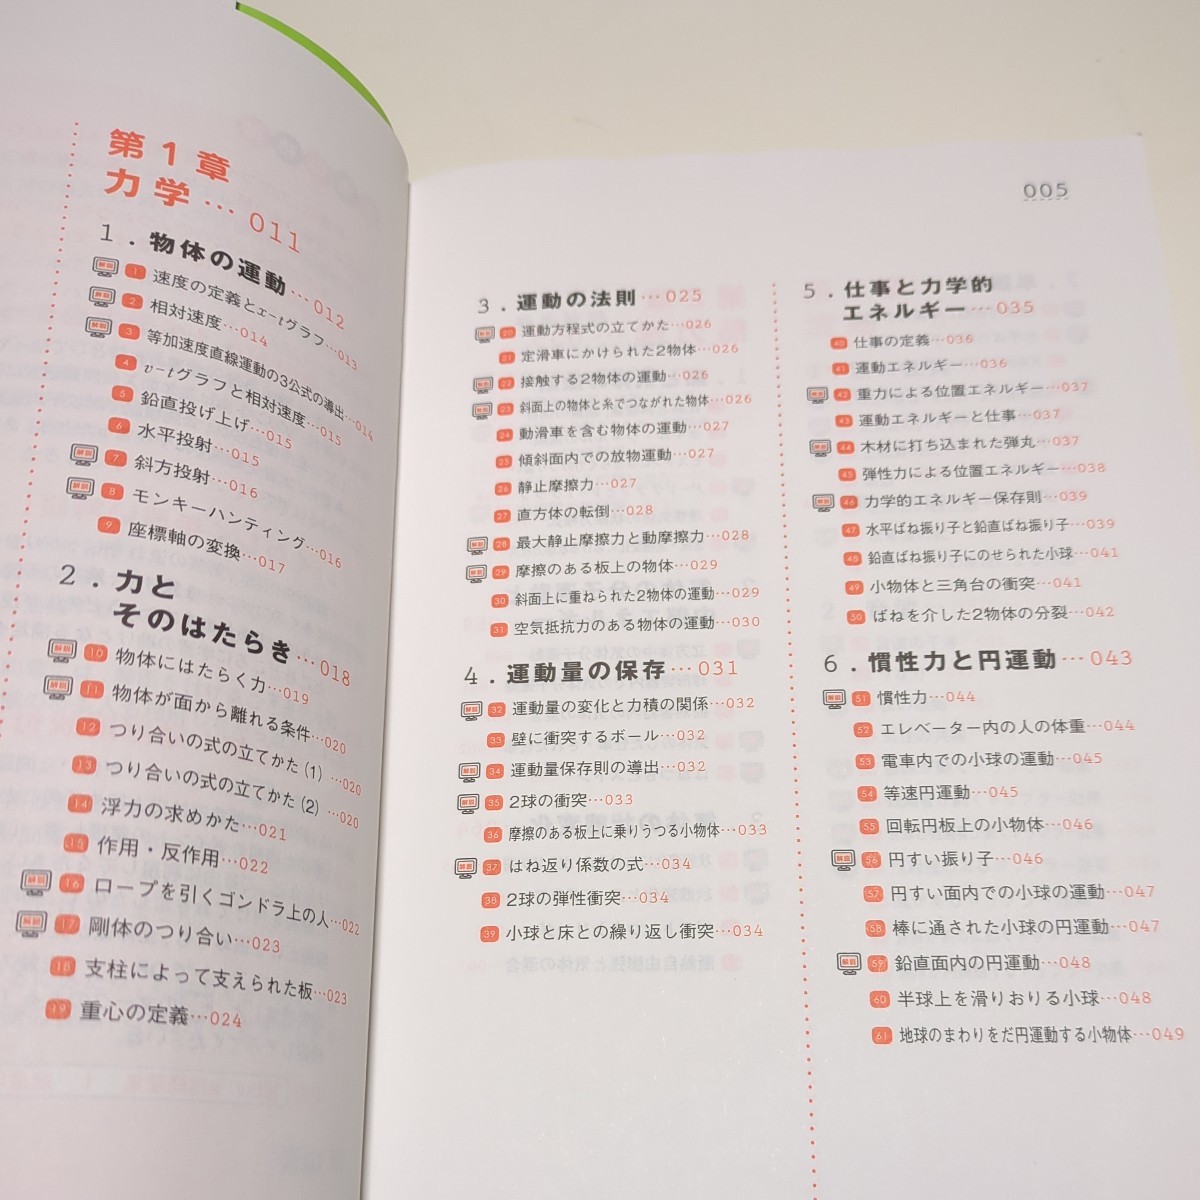 第1章
力学…011
1．物体の運動…012
解説 1 速度の定義とx-tグラフ…013
解説 2 相対速度…014
解説 3 等加速度直線運動の3公式の導出…014
4 v-tグラフと相対速度…015
5 鉛直投げ上げ…015
6 水平投射…015
解説 7 斜方投射…016
解説 8 モンキーハンティング…016
9 座標軸の変換…017
2．力と
そのはたらき…018
解説 10 物体にはたらく力…019
解説 11 物体が面から離れる条件…020
12 つり合いの式の立てかた(1)…020
13 つり合いの式の立てかた(2)…020
14 浮力の求めかた…021
15 作用・反作用…022
解説 16 ロープを引くゴンドラ上の人…022
解説 17 剛体のつり合い…023
18 支柱によって支えられた板…023
19 重心の定義…024
005
3．運動の法則…025
解説 20 運動方程式の立てかた…026
21 定滑車にかけられた2物体…026
解説 22 接触する2物体の運動…026
解説 23 斜面上の物体と糸でつながれた物体…026
24 動滑車を含む物体の運動…027
25 傾斜面内での放物運動…027
26 静止摩擦力…027
27 直方体の転倒…028
解説 28 最大静止摩擦力と動摩擦力…028
解説 29 摩擦のある板上の物体…029
30 斜面上に重ねられた2物体の運動…029
31 空気抵抗力のある物体の運動…030
4．運動量の保存…031
解説 32 運動量の変化と力積の関係…032
33 壁に衝突するボール…032
解説 34 運動量保存則の導出…032
解説 35 2球の衝突…033
36 摩擦のある板上に乗りうつる小物体…033
解説 37 はね返り係数の式…034
38 2球の弾性衝突…034
39 小球と床との繰り返し衝突…034
5．仕事と力学的
エネルギー…035
40 仕事の定義…036
41 運動エネルギー…036
解説 42 重力による位置エネルギー…037
43 運動エネルギーと仕事…037
解説 44 木材に打ち込まれた弾丸…037
45 弾性力による位置エネルギー…038
解説 46 力学的エネルギー保存則…039
47 水平ばね振り子と鉛直ばね振り子…039
48 鉛直ばね振り子にのせられた小球…041
49 小物体と三角台の衝突…041
50 ばねを介した2物体の分裂…042
6．慣性力と円運動…043
解説 51 慣性力…044
52 エレベーター内の人の体重…044
53 電車内での小球の運動…045
54 等速円運動…045
55 回転円板上の小物体…046
解説 56 円すい振り子…046
57 円すい面内での小球の運動…047
58 棒に通された小球の円運動…047
解説 59 鉛直面内の円運動…048
60 半球上を滑りおりる小球…048
61 地球のまわりをだ円運動する小物体…049